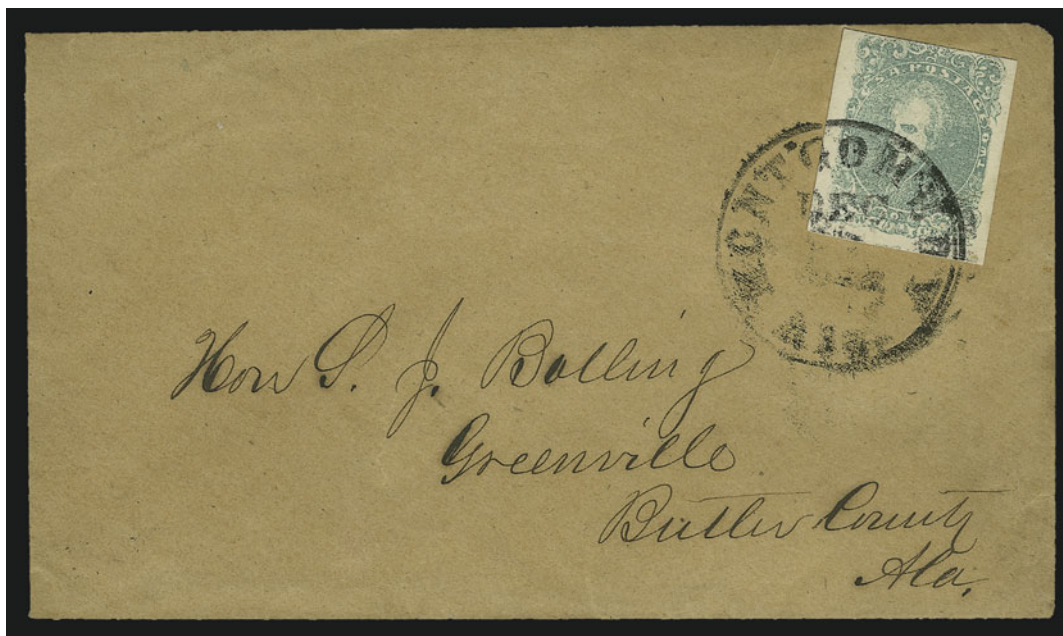 S.A. POSTAGE
MONTGOMERY
DEC
ALA
Hon S. J. Bolling
Greenville
Butler County
Ala.